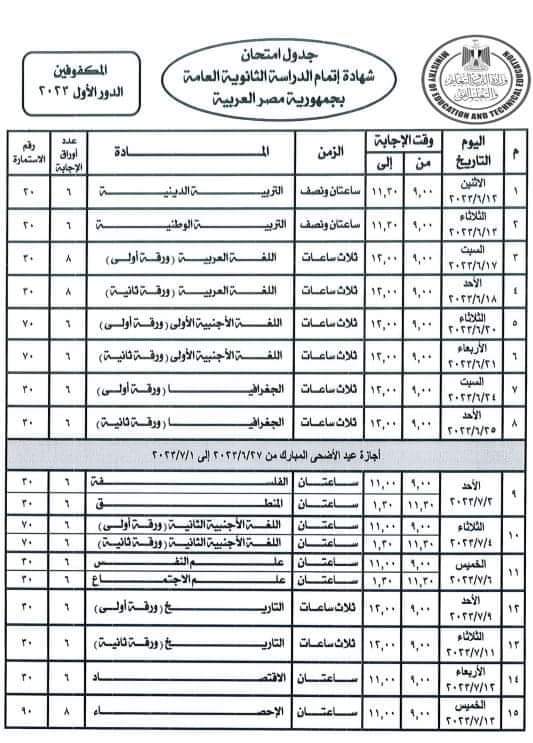 جدول امتحان
شهادة إتمام الدراسة الثانوية العامة
بجمهورية مصر العربية
المكفوفين
الدور الأول ٢٠٢٣
وزارة التربية والتعليم
MINISTRY OF EDUCATION AND TECHNICAL EDUCATION
م اليوم التاريخ وقت الإجابة من إلى الزمن المادة عدد أوراق الإجابة رقم الاستمارة
١ الاثنين ٢٠٢٣/٦/١٢ ٩,٠٠ ١١,٣٠ ساعتان ونصف التربية الدينية ٦ ٣٠
٢ الثلاثاء ٢٠٢٣/٦/١٣ ٩,٠٠ ١١,٣٠ ساعتان ونصف التربية الوطنية ٦ ٣٠
٣ السبت ٢٠٢٣/٦/١٧ ٩,٠٠ ١٢,٠٠ ثلاث ساعات اللغة العربية (ورقة أولى) ٨ ٣٠
٤ الأحد ٢٠٢٣/٦/١٨ ٩,٠٠ ١٢,٠٠ ثلاث ساعات اللغة العربية (ورقة ثانية) ٨ ٣٠
٥ الثلاثاء ٢٠٢٣/٦/٢٠ ٩,٠٠ ١٢,٠٠ ثلاث ساعات اللغة الأجنبية الأولى (ورقة أولى) ٦ ٧٠
٦ الأربعاء ٢٠٢٣/٦/٢١ ٩,٠٠ ١٢,٠٠ ثلاث ساعات اللغة الأجنبية الأولى (ورقة ثانية) ٦ ٧٠
٧ السبت ٢٠٢٣/٦/٢٤ ٩,٠٠ ١٢,٠٠ ثلاث ساعات الجغرافيا (ورقة أولى) ٦ ٣٠
٨ الأحد ٢٠٢٣/٦/٢٥ ٩,٠٠ ١٢,٠٠ ثلاث ساعات الجغرافيا (ورقة ثانية) ٦ ٣٠
أجازة عيد الأضحى المبارك من ٢٠٢٣/٦/٢٧ إلى ٢٠٢٣/٧/١
٩ الأحد ٢٠٢٣/٧/٢ ٩,٠٠ ١١,٠٠ ساعتان الفلسفة ٦ ٣٠
١١,٣٠ ١,٣٠ ساعتان المنطق ٦ ٣٠
١٠ الثلاثاء ٢٠٢٣/٧/٤ ٩,٠٠ ١١,٠٠ ساعتان اللغة الأجنبية الثانية (ورقة أولى) ٦ ٧٠
١١,٣٠ ١,٣٠ ساعتان اللغة الأجنبية الثانية (ورقة ثانية) ٦ ٧٠
١١ الخميس ٢٠٢٣/٧/٦ ٩,٠٠ ١١,٠٠ ساعتان علم النفس ٦ ٣٠
١١,٣٠ ١,٣٠ ساعتان علم الاجتماع ٦ ٣٠
١٢ الأحد ٢٠٢٣/٧/٩ ٩,٠٠ ١٢,٠٠ ثلاث ساعات التاريخ (ورقة أولى) ٦ ٣٠
١٣ الثلاثاء ٢٠٢٣/٧/١١ ٩,٠٠ ١٢,٠٠ ثلاث ساعات التاريخ (ورقة ثانية) ٦ ٣٠
١٤ الأربعاء ٢٠٢٣/٧/١٢ ٩,٠٠ ١١,٠٠ ساعتان الاقتصاد ٦ ٣٠
١٥ الخميس ٢٠٢٣/٧/١٣ ٩,٠٠ ١١,٠٠ ساعتان الإحصاء ٨ ٩٠